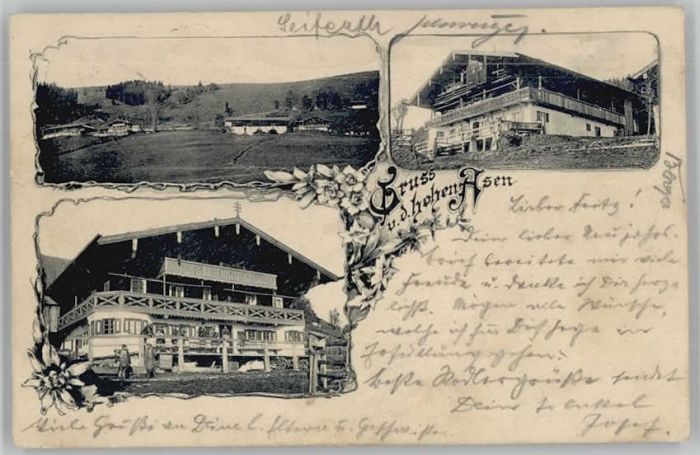 Seiferth
Gruss
v. d. hohen Asen
Lieber Fritz!
Dein lieber Neujahrs-
brief bereitete mir viele
Freude u. danke ich Dir herz-
lichst. Mögen alle Wünsche,
welche ich für Dich hege in
Erfüllung gehen.
beste Rodlergrüße sendet
Dein Onkel
Josef.
Viele Grüße an Deine l. Eltern u. Geschwister